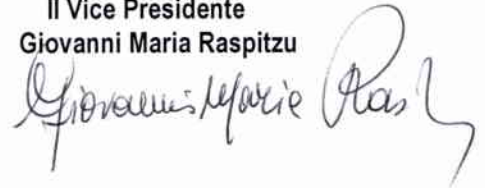 Il Vice Presidente
Giovanni Maria Raspitzu
Giovanni Maria Ras